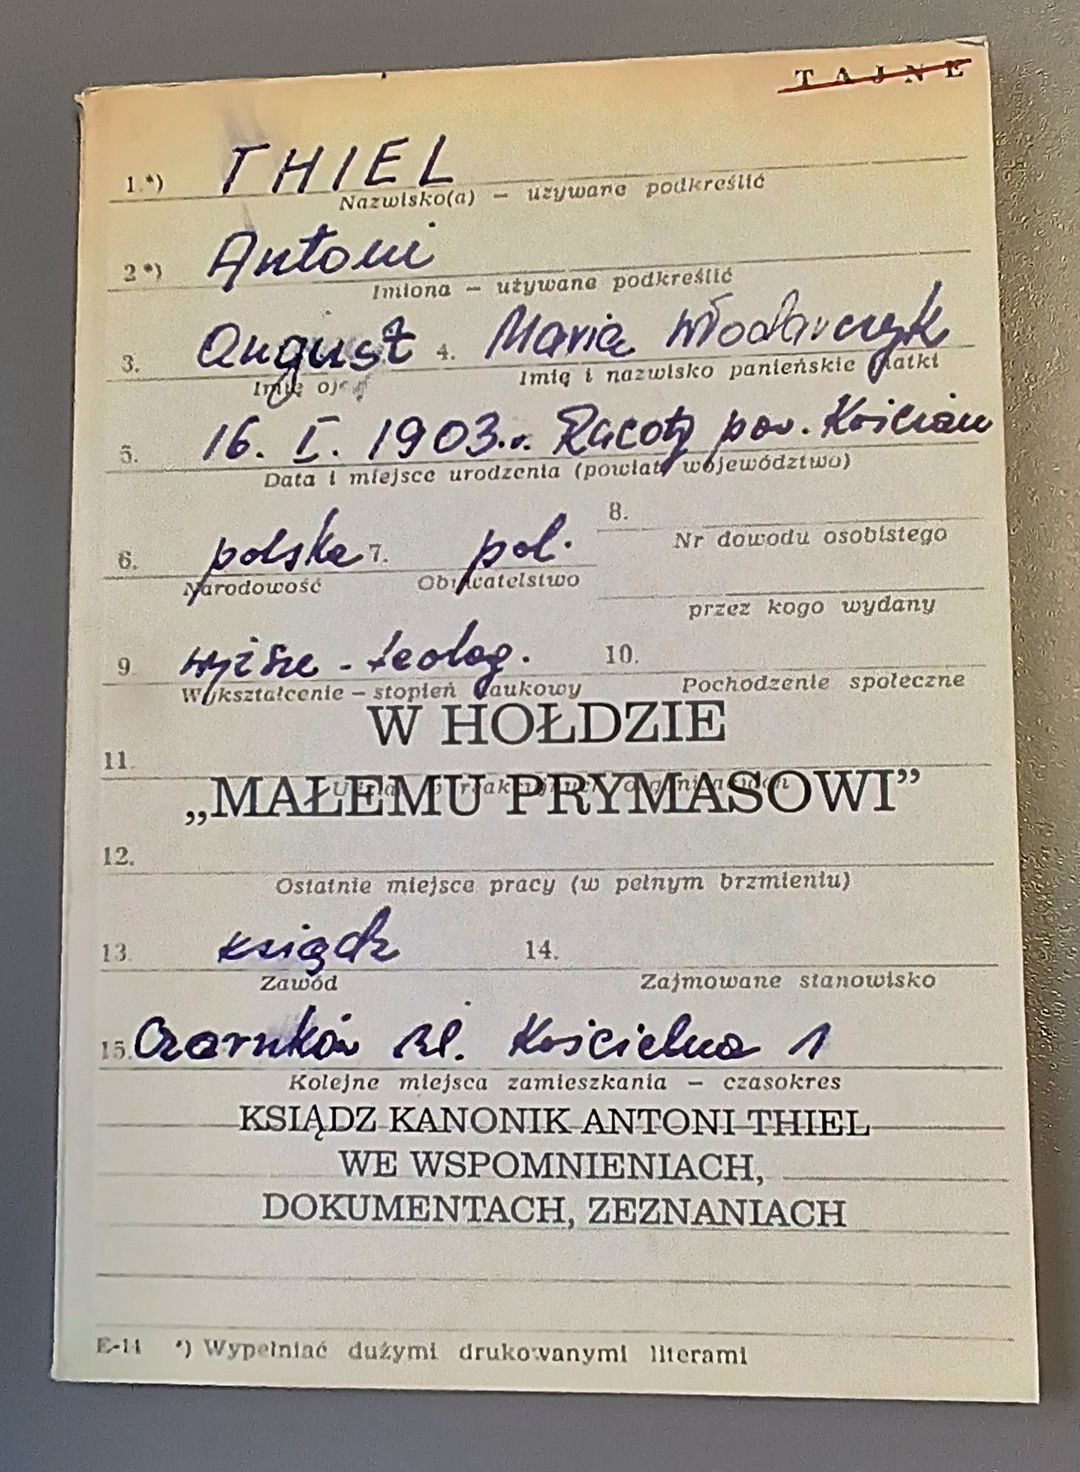 TAJNE
1.*) THIEL
Nazwisko(a) – używane podkreślić
2*) Antoni
Imiona – używane podkreślić
3. August 4. Maria Włodarczyk
Imię ojca Imię i nazwisko panieńskie matki
5. 16. I. 1903 r. Racoty pow. Kościan
Data i miejsce urodzenia (powiat, województwo)
6. polska 7. pol. 8.
Narodowość Obywatelstwo Nr dowodu osobistego
przez kogo wydany
9. wyższe - teolog. 10.
Wykształcenie – stopień naukowy Pochodzenie społeczne
W HOŁDZIE
11.
„MAŁEMU PRYMASOWI”
12.
Ostatnie miejsce pracy (w pełnym brzmieniu)
13. ksiądz 14.
Zawód Zajmowane stanowisko
15. Czarnków ul. Kościelna 1
Kolejne miejsca zamieszkania – czasokres
KSIĄDZ KANONIK ANTONI THIEL
WE WSPOMNIENIACH,
DOKUMENTACH, ZEZNANIACH
E-14 *) Wypełniać dużymi drukowanymi literami